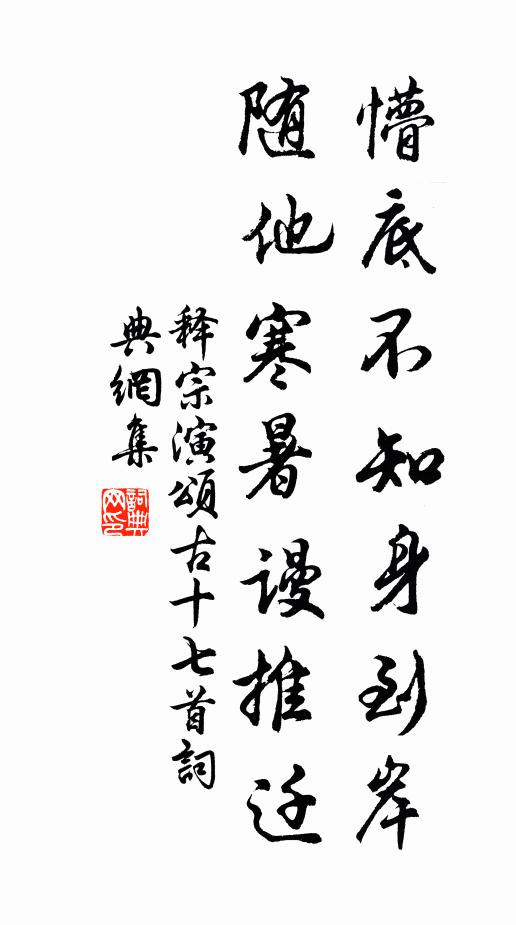 懵底不知身到岸
随他寒暑谩推迁
释宗演颂古十七首詞
典網集
詞典網印